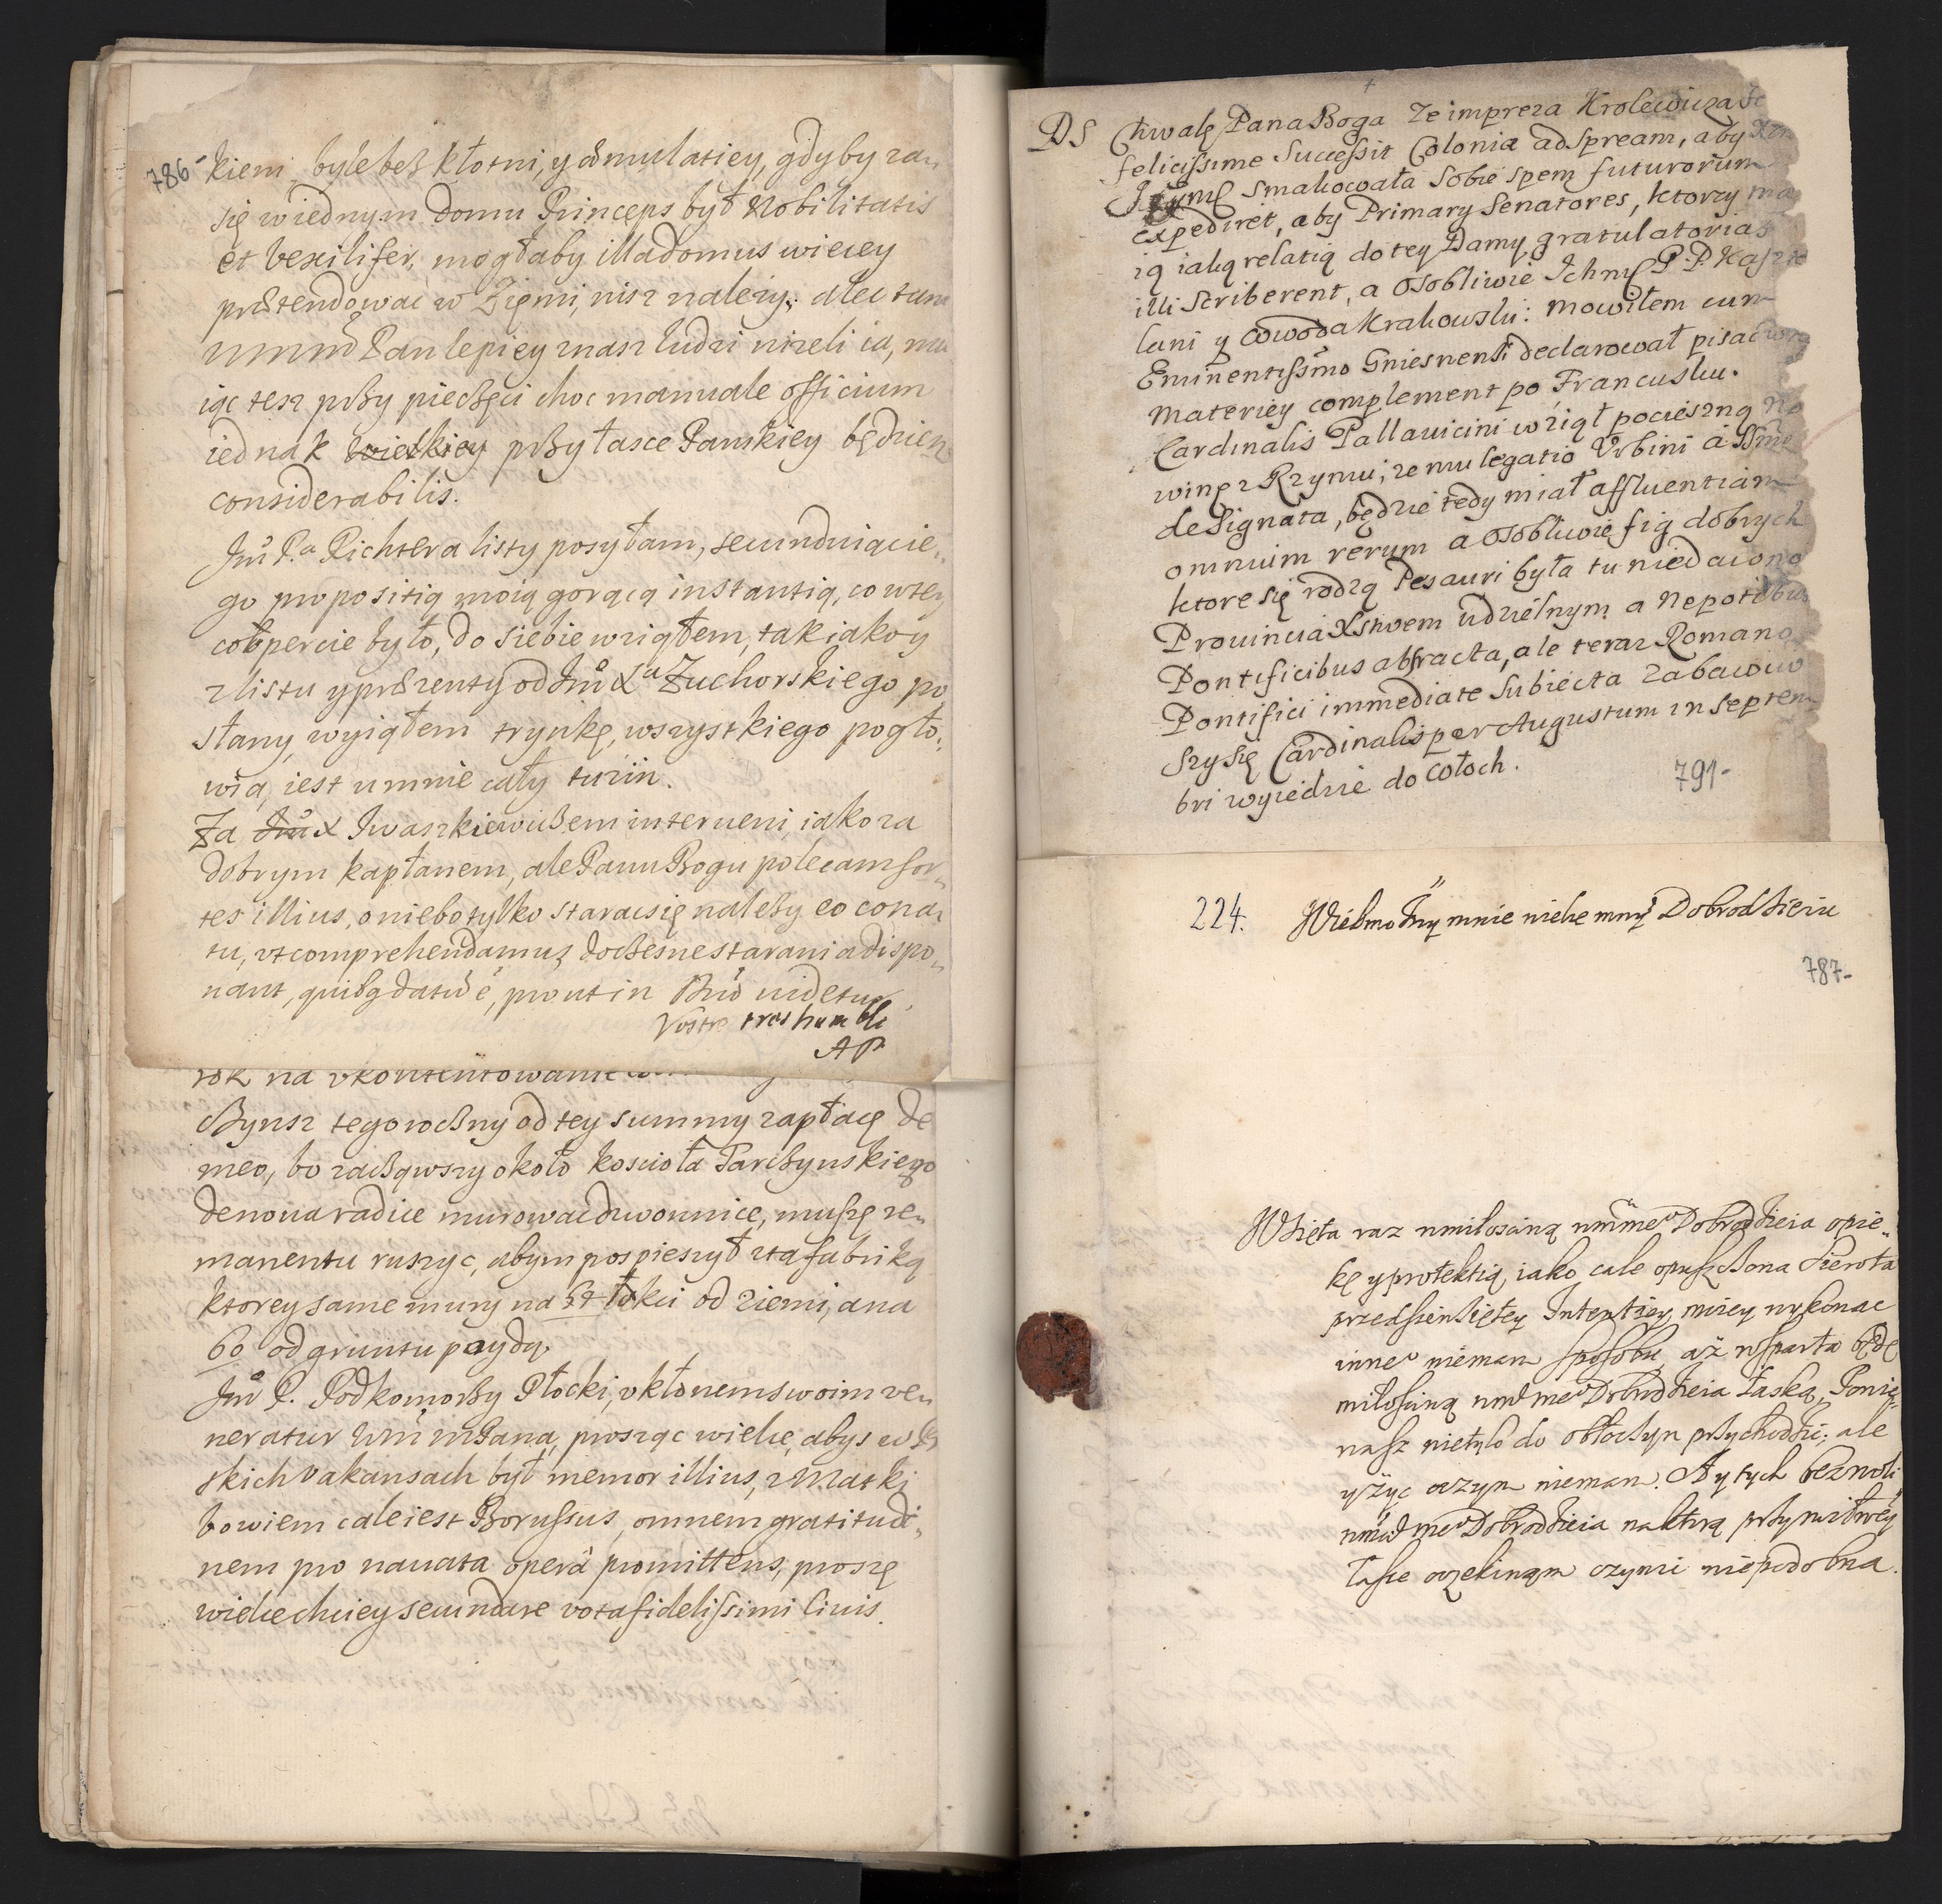 786-
kiem bylebesz kłotni, y æmulatiey, gdyby raz
się wiednym domu Princeps był Nobilitatis
et Vexilifer, mogłaby illa domus wiecey
prætendowac w Ziemi, nisz nalezy, a lec tum
Pan lepiey znasz ludzi nizeli ia, ma
iąc tesz przy pieczęci choc manuale officium
iednak wielkiey przy łasce Panskiey będzien
considerabilis.
Jmć P.a Richtera listy posyłam, secundniącie,,
go propositią moią gorącą instantią, co wtey
było, do siebie wziąłem, tak iako y
z listu y præzenty od Jmć X.a Zuchorskiego po
słany, wyiąłem trynkę, wszystkiego pogło,,
wia, iest u mnie cały tuzin.
Za Jmć X Iwaszkiewiczem interueni, iako za
dobrym kapłanem, ale Panu Bogu polecam for,,
tes illius, o niebo tylko staracsię należy eo cona,,
tu, vt comprehendamus, doczesne starania dispo,,
nant, quibq datū ē, prout in Dnō uidetur.
Vostre tres humble
AP
rok na vkontentowanie
Czynsz tegoroczny od tey summy zapłacę de
meo, bo zacząwszy około koscioła Parczynskiego
de noua radice murowac dzwonnice, muszę re,,
manentu ruszyc, abym pospieszył zta fabriką
ktorey same mury na łokci od ziemi, a na
60 od gruntu poydą.
Jmć P. Podkomorzy Płocki, vkłonem swoim ve,,
neratur Pana, prosząc wielce, abys w
skich vakansach był memor illius, z Matki
bowiem cale iest Borussus, omnem gratitudi,,
nem pro nauata operâ promittens, proszę
wielce chciey secundare vota fidelissimi Ciuis.
DS Chwalę Pana Boga Ze impreza Krolewicza
felicissime Successit Colonia ad Spream, aby
Jeymć Smakowała Sobie Spem futurorum
expediret, aby Primary Senatores, ktorzy ma
ią iakąrelatią do tey Damy gratulatorias
illi Scriberent, a osobliwie Ichmć P.P. Kaszte
lani y Wowoda Krakowski: mowiłem cum
Eminentissimo Gniesnensi declarował pisac
Materiey complement po Francusku.
Cardinalis Pallauicini wziął pocieszną No
winę z Rzymu; ze mu legatio Vrbini
designata, będzie tedy miał affluentiam
omnium rerum a osobliwie fig dobrych
ktore się rodzą Pesauri była tu niedaiono
Prouincia Xstwem udzielnym a Nepotibus
Pontificibus abstracta, ale teraz Romano
Pontifici immediate Subiecta Zabawiw
Szy się Cardinalis per Augustum in Septem
bri wyiedzie do Włoch.
791-
224.
Wielmożny mnie wielce mnć Dobrodzieiu
787-
Wzięta raz Dobrodzieia opie,,
kę y protektią, iako cale opuszczona Sierota
przedsienwziętey Intentiey moiey wykonac
inne.o nieman sposobu, aż wsparta będę
miłosciwą Dobrodzieia łaską, Ponie,,
nasz nietylo do przychodzi, ale
y życ oczym nieman. A y tych bez woli
Dobrodzieia na ktorą przy miłoscwey
łasce oczekiwam czynic niepodobna.